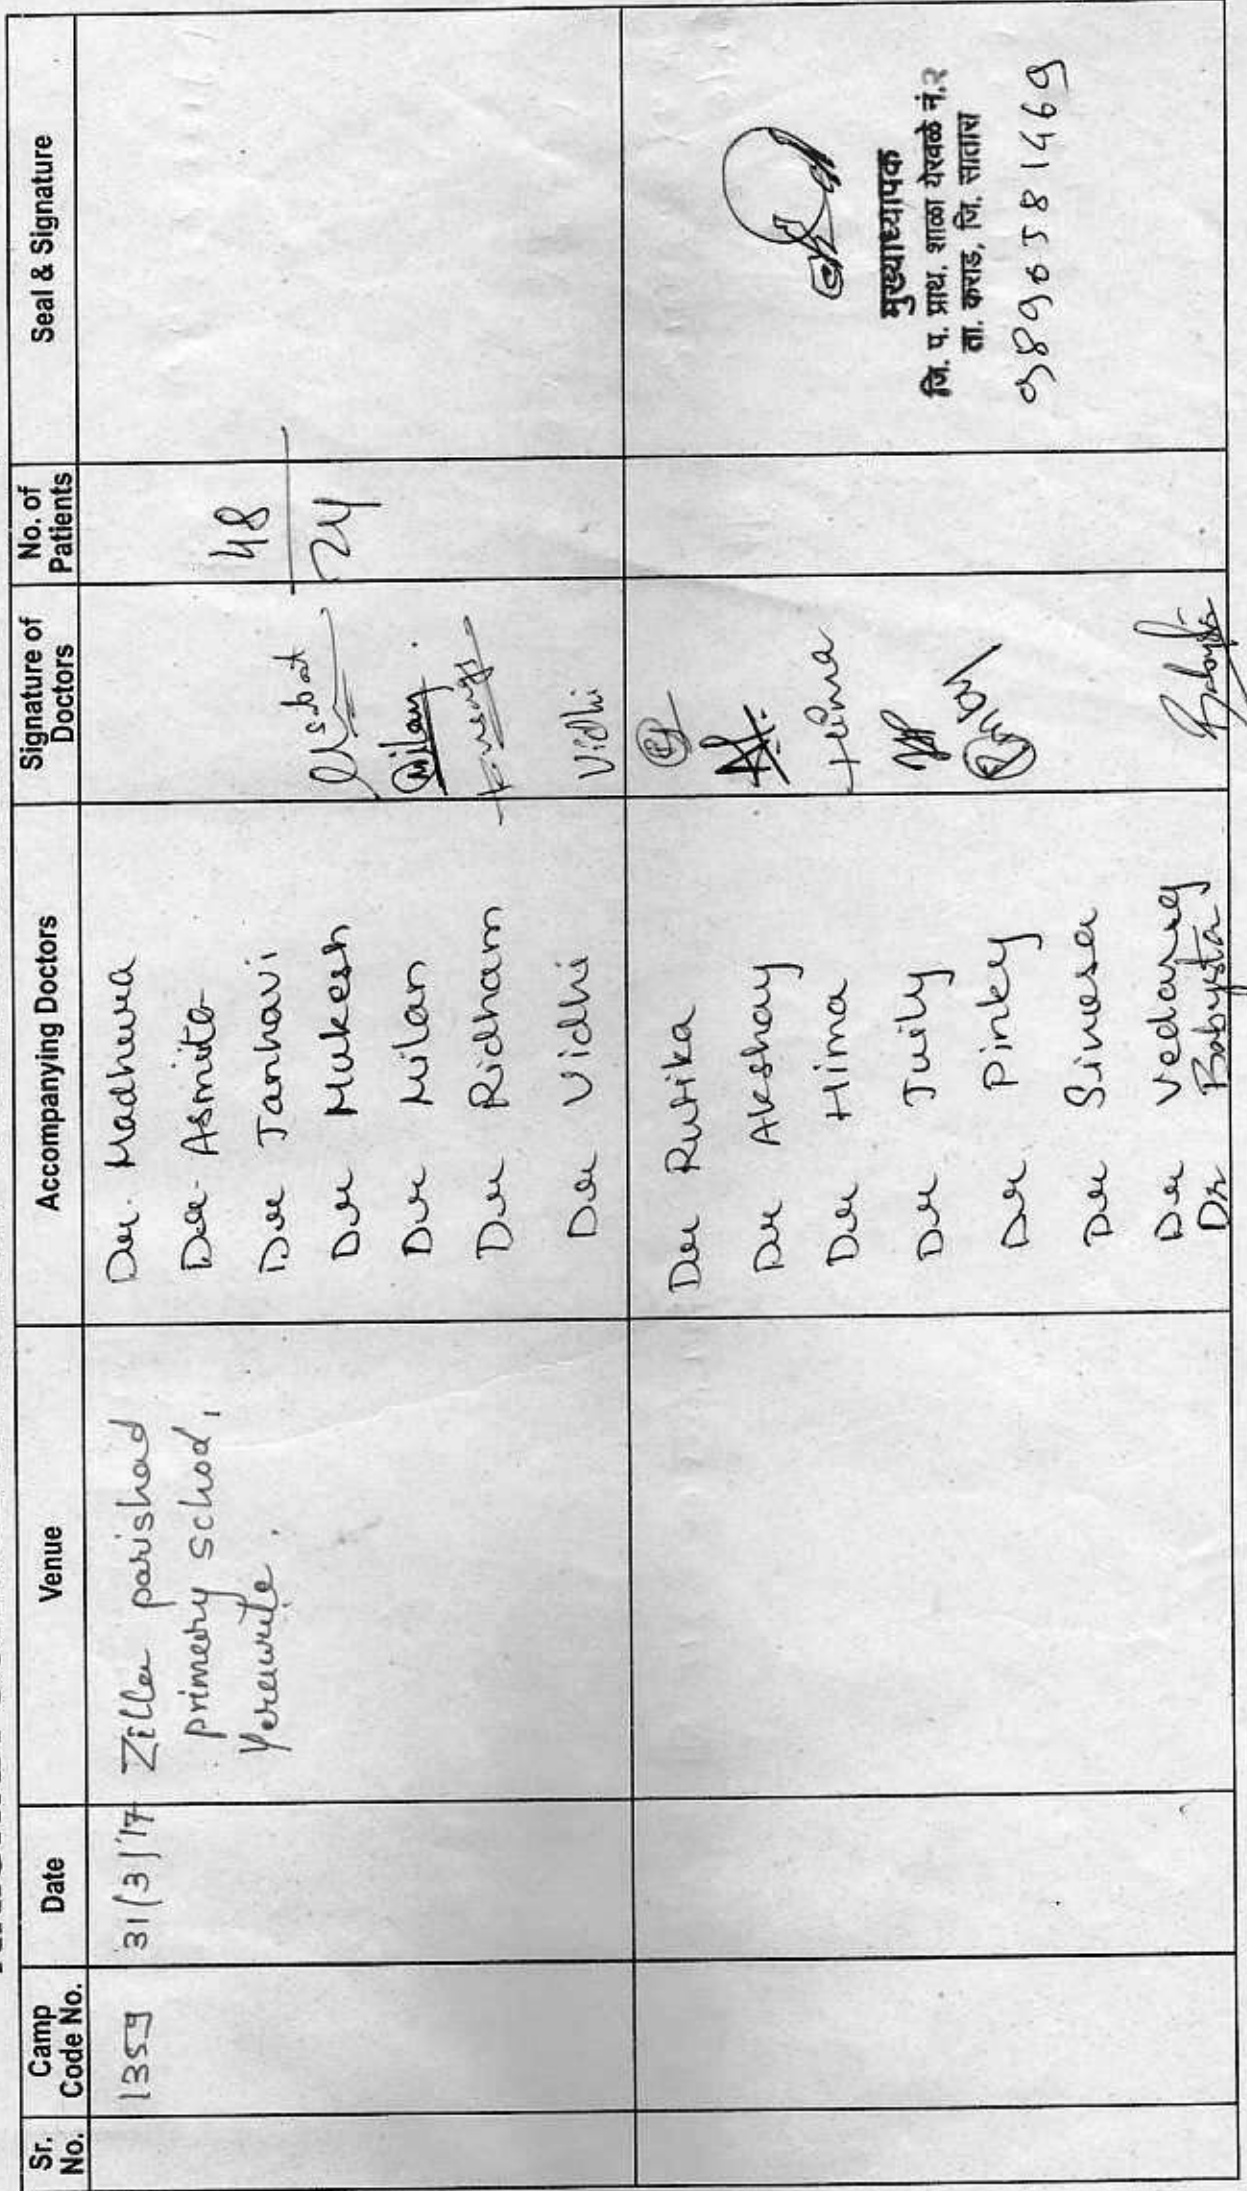 Sr. No.
Camp Code No.
Date
Venue
Accompanying Doctors
Signature of Doctors
No. of Patients
Seal & Signature
1359
31/3/17
Zilla parishad
primary school,
Dr. Madhura
Dr. Asmita
Dr Janhavi
Dr Mukesh
Dr Milan
Dr Ridham
Dr Vidhi
Milan
Vidhi
48
24
Dr Rutika
Dr Akshay
Dr Hima
Dr Juily
Dr Pinky
Dr Simosa
Dr Vedang
Dr Babysta
Hima
मुख्याध्यापक
जि. प. प्राथ. शाळा येरवळे नं.२
ता. कराड, जि. सातारा
9890581469